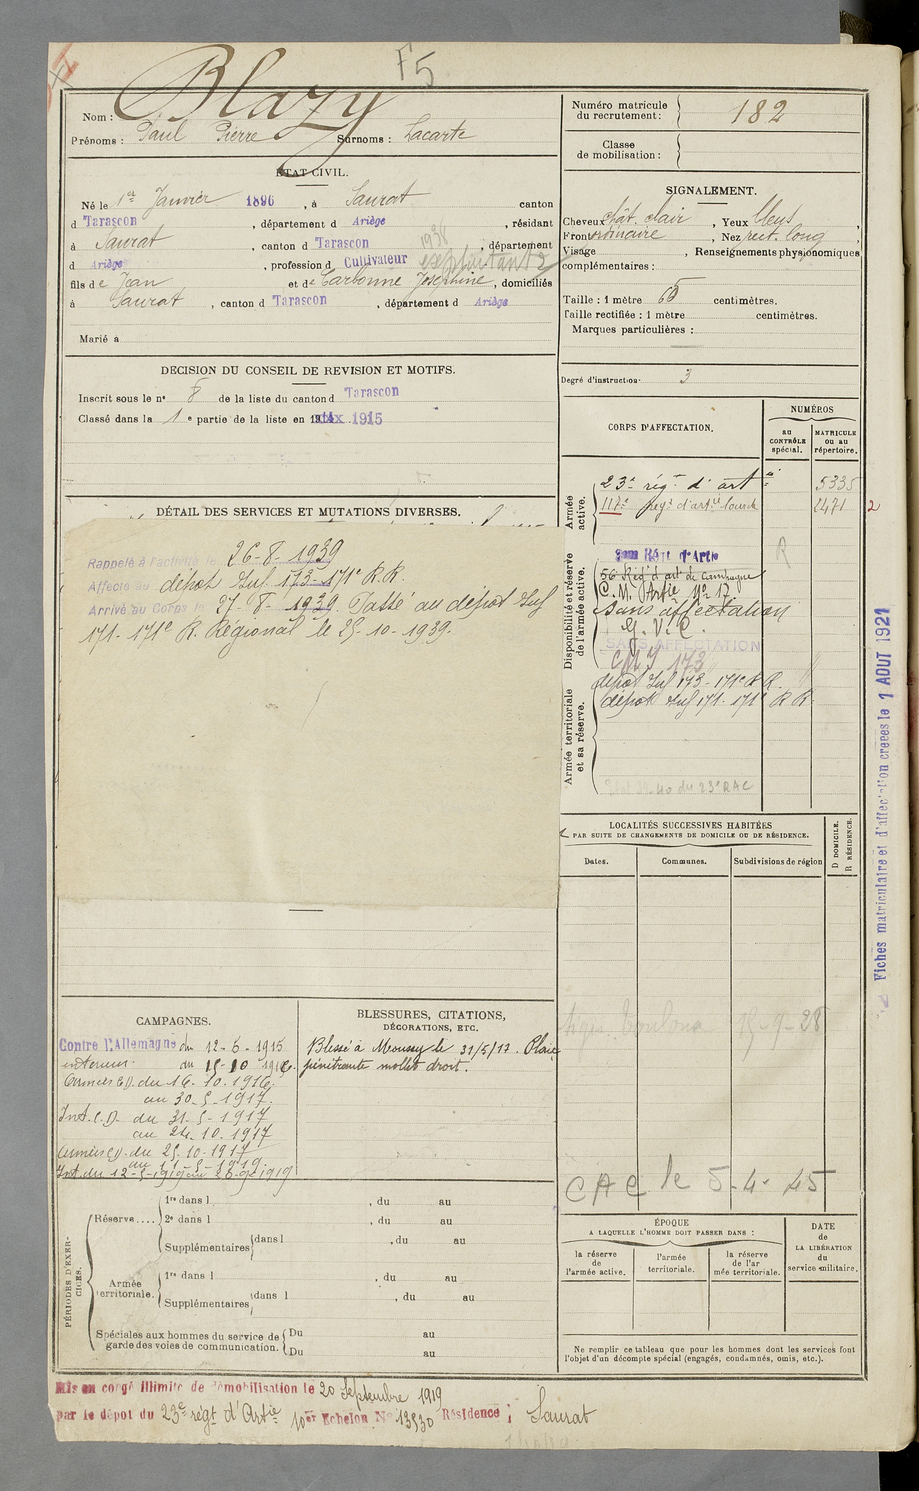 F5
Nom : Blazy
Prénoms : Paul Pierre Surnoms : Lacarte
ÉTAT CIVIL.
Né le 1er Janvier 1896, à Saurat canton
d Tarascon, département d Ariège, résidant
à Saurat, canton d Tarascon, département
1938
d Ariège, profession d Cultivateur exploitant
fils de Jean et de Carbonne Josephine, domiciliés
à Saurat, canton d Tarascon, département d Ariège
Marié à
DECISION DU CONSEIL DE REVISION ET MOTIFS.
Inscrit sous le n° 8 de la liste du canton d Tarascon
Classé dans la 1e partie de la liste en 1915
DÉTAIL DES SERVICES ET MUTATIONS DIVERSES.
Rappelé à l'activité le 26-8-1939
Affecté au dépôt Inf 173-171e R.R.
Arrivé au Corps le 27-8-1939. Passé au dépôt Inf
171-171e R. Régional le 25-10-1939.
CAMPAGNES.
Contre l'Allemagne du 12-5-1915
intérieur du 15-10 1916.
Armées C.D. du 16-10-1916.
au 30-5-1917.
Int. C.D. du 31-5-1917
au 24-10-1917
Armées C.D. du 25-10-1917
au 11-5-1919
Int. du 12-5-1919 au 1919
BLESSURES, CITATIONS,
DÉCORATIONS, ETC.
Blessé à Moussy le 31/5/17. Plaie
pénétrante mollet droit.
PÉRIODES D'EXERCICES.
Réserve.... 1re dans l , du au
2e dans l , du au
Supplémentaires dans l , du au
Armée territoriale. 1re dans l , du au
Supplémentaires dans l , du au
Spéciales aux hommes du service de garde des voies de communication. Du au
Du au
Mis en congé illimité de démobilisation le 20 Septembre 1919
par le dépôt du 23e régt d'Artie 10er Echelon N° 13530 Résidence : Saurat
Numéro matricule
du recrutement : 182
Classe
de mobilisation :
SIGNALEMENT.
Cheveux chât. clair, Yeux bleus,
Front ordinaire, Nez rect. long,
Visage , Renseignements physionomiques
complémentaires :
Taille : 1 mètre 65 centimètres.
Taille rectifiée : 1 mètre centimètres.
Marques particulières :
Degré d'instruction : 3
CORPS D'AFFECTATION.
NUMÉROS
au
CONTRÔLE
spécial.
MATRICULE
ou au
répertoire.
Armée active.
23e rég.t d'artie 5335
117e rég.t d'artie lourde 2471 2
Disponibilité et réserve de l'armée active.
Régt d'Artie R
56 Régt d'art de campagne
C. M. Artie N° 17
Sans affectation
G. V. C.
SANS AFFECTATION
CMI 173
Armée territoriale et sa réserve.
dépôt Inf 173-171e R R.
dépôt Inf 171-171e R R.
40 du 23e RAC
LOCALITÉS SUCCESSIVES HABITÉES
PAR SUITE DE CHANGEMENTS DE DOMICILE OU DE RÉSIDENCE.
Dates. Communes. Subdivisions de région
D DOMICILE.
R RÉSIDENCE.
CAC le 5-4-45
ÉPOQUE
A LAQUELLE L'HOMME DOIT PASSER DANS :
la réserve
de
l'armée active.
l'armée
territoriale.
la réserve
de l'ar
mée territoriale.
DATE
de
LA LIBÉRATION
du
service militaire.
Ne remplir ce tableau que pour les hommes dont les services font
l'objet d'un décompte spécial (engagés, condamnés, omis, etc.).
Fiches matriculaire et d'affectation créées le 1 AOUT 1921